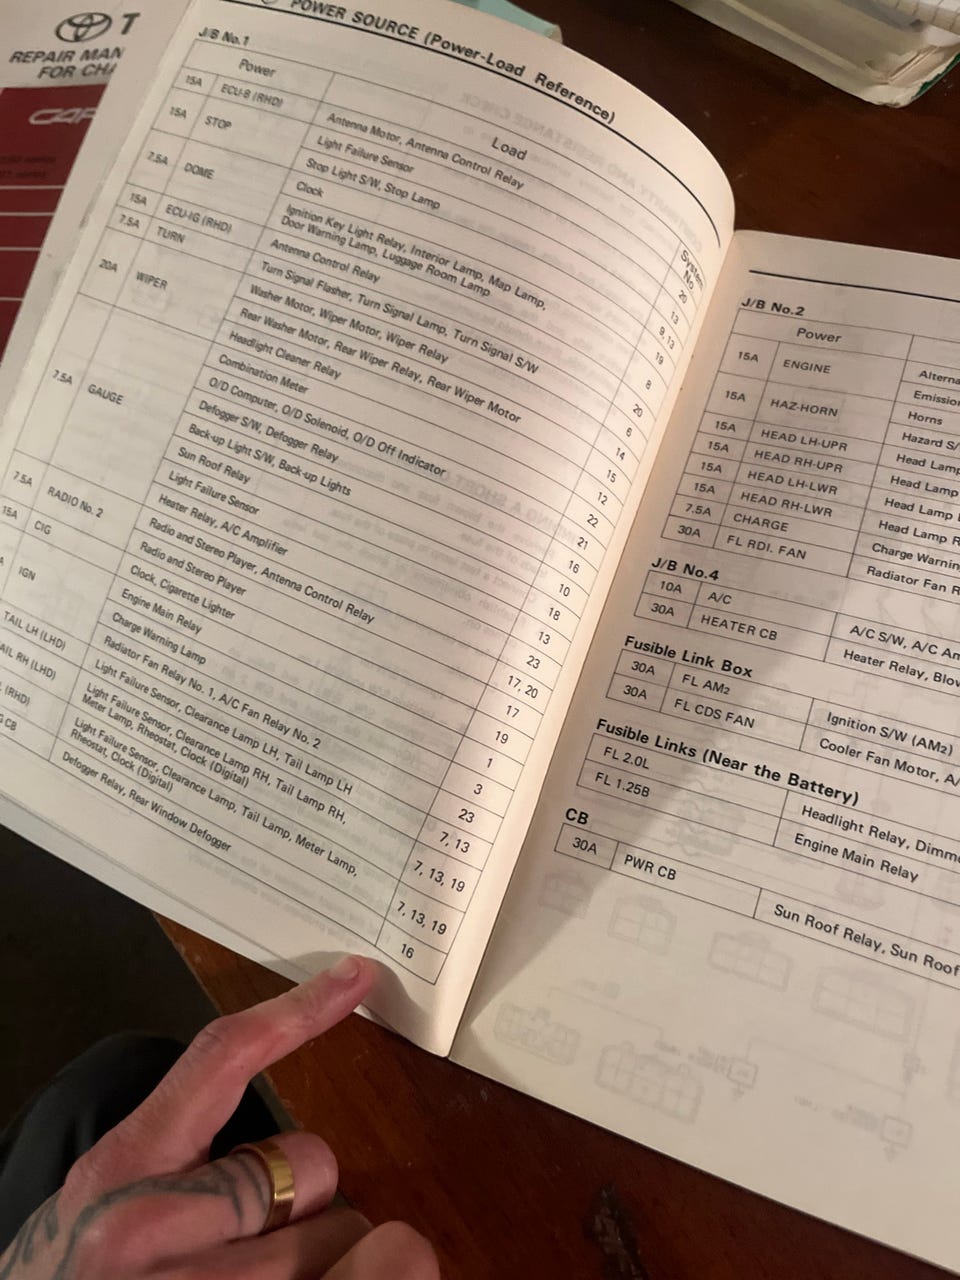 T
REPAIR MAN
FOR CHA
CAR
POWER SOURCE (Power-Load Reference)
J/B No.1
Power
Load
System No.
15A ECU-B (RHD) Antenna Motor, Antenna Control Relay 20
Light Failure Sensor 13
15A STOP Stop Light S/W, Stop Lamp 9, 13
Clock 19
7.5A DOME Ignition Key Light Relay, Interior Lamp, Map Lamp,
Door Warning Lamp, Luggage Room Lamp 8
15A ECU-IG (RHD) Antenna Control Relay 20
7.5A TURN Turn Signal Flasher, Turn Signal Lamp, Turn Signal S/W 6
20A WIPER Washer Motor, Wiper Motor, Wiper Relay 14
Rear Washer Motor, Rear Wiper Relay, Rear Wiper Motor 15
Headlight Cleaner Relay 12
7.5A GAUGE Combination Meter 22
O/D Computer, O/D Solenoid, O/D Off Indicator 21
Defogger S/W, Defogger Relay 16
Back-up Light S/W, Back-up Lights 10
Sun Roof Relay 18
Light Failure Sensor 13
Heater Relay, A/C Amplifier 23
7.5A RADIO No. 2 Radio and Stereo Player, Antenna Control Relay 17, 20
15A CIG Radio and Stereo Player 17
Clock, Cigarette Lighter 19
IGN Engine Main Relay 1
Charge Warning Lamp 3
Radiator Fan Relay No. 1, A/C Fan Relay No. 2 23
TAIL LH (LHD) Light Failure Sensor, Clearance Lamp LH, Tail Lamp LH 7, 13
AIL RH (LHD) Light Failure Sensor, Clearance Lamp RH, Tail Lamp RH,
Meter Lamp, Rheostat, Clock (Digital) 7, 13, 19
(RHD) Light Failure Sensor, Clearance Lamp, Tail Lamp, Meter Lamp,
Rheostat, Clock (Digital) 7, 13, 19
CB Defogger Relay, Rear Window Defogger 16
J/B No.2
Power
15A ENGINE Alterna
Emission
15A HAZ-HORN Horns
Hazard S/
15A HEAD LH-UPR Head Lamp
15A HEAD RH-UPR Head Lamp
15A HEAD LH-LWR Head Lamp L
15A HEAD RH-LWR Head Lamp R
7.5A CHARGE Charge Warning
30A FL RDI. FAN Radiator Fan R
J/B No.4
10A A/C A/C S/W, A/C Am
30A HEATER CB Heater Relay, Blow
Fusible Link Box
30A FL AM2 Ignition S/W (AM2)
30A FL CDS FAN Cooler Fan Motor, A/
Fusible Links (Near the Battery)
FL 2.0L Headlight Relay, Dimme
FL 1.25B Engine Main Relay
CB
30A PWR CB Sun Roof Relay, Sun Roof